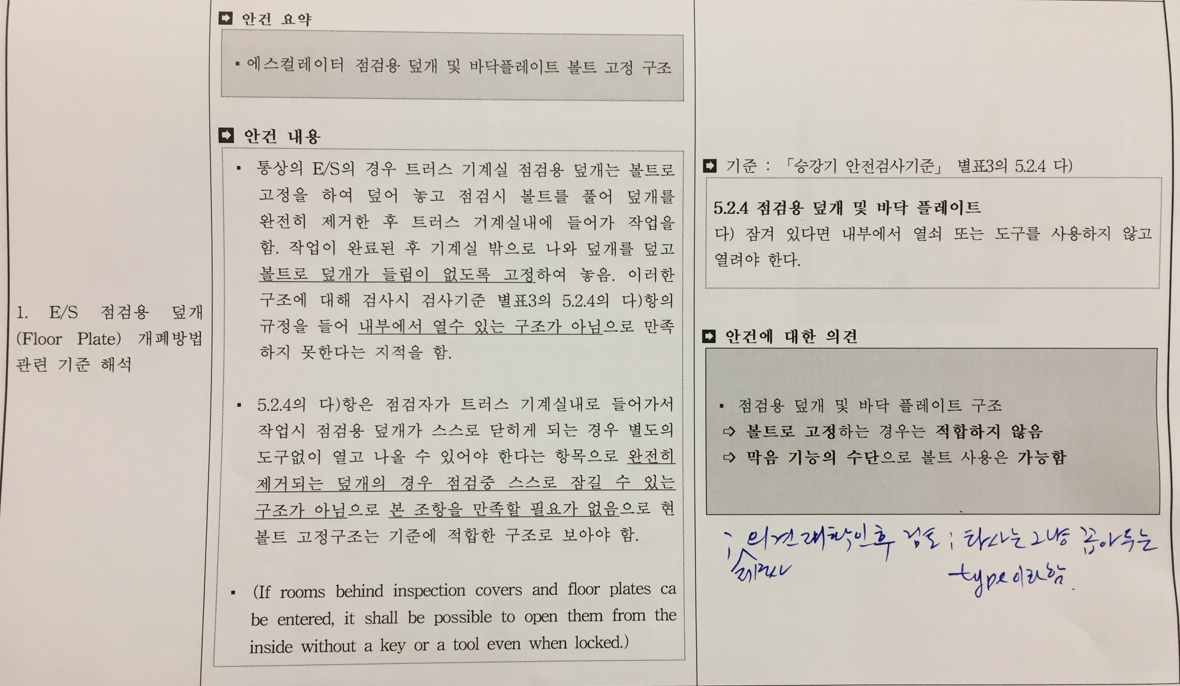 1. E/S 점검용 덮개
(Floor Plate) 개폐방법
관련 기준 해석
안건 요약
▪ 에스컬레이터 점검용 덮개 및 바닥플레이트 볼트 고정 구조
안건 내용
▪ 통상의 E/S의 경우 트러스 기계실 점검용 덮개는 볼트로
고정을 하여 덮어 놓고 점검시 볼트를 풀어 덮개를
완전히 제거한 후 트러스 기계실내에 들어가 작업을
함. 작업이 완료된 후 기계실 밖으로 나와 덮개를 덮고
볼트로 덮개가 들림이 없도록 고정하여 놓음. 이러한
구조에 대해 검사시 검사기준 별표3의 5.2.4의 다)항의
규정을 들어 내부에서 열수 있는 구조가 아님으로 만족
하지 못한다는 지적을 함.
▪ 5.2.4의 다)항은 점검자가 트러스 기계실내로 들어가서
작업시 점검용 덮개가 스스로 닫히게 되는 경우 별도의
도구없이 열고 나올 수 있어야 한다는 항목으로 완전히
제거되는 덮개의 경우 점검중 스스로 잠길 수 있는
구조가 아님으로 본 조항을 만족할 필요가 없음으로 현
볼트 고정구조는 기준에 적합한 구조로 보아야 함.
▪ (If rooms behind inspection covers and floor plates ca
be entered, it shall be possible to open them from the
inside without a key or a tool even when locked.)
기준 : 「승강기 안전검사기준」 별표3의 5.2.4 다)
5.2.4 점검용 덮개 및 바닥 플레이트
다) 잠겨 있다면 내부에서 열쇠 또는 도구를 사용하지 않고
열려야 한다.
안건에 대한 의견
▪ 점검용 덮개 및 바닥 플레이트 구조
⇨ 볼트로 고정하는 경우는 적합하지 않음
⇨ 막음 기능의 수단으로 볼트 사용은 가능함
; 의견 후 검토 ; 타사는 그냥 꼽아두는
type이라함.